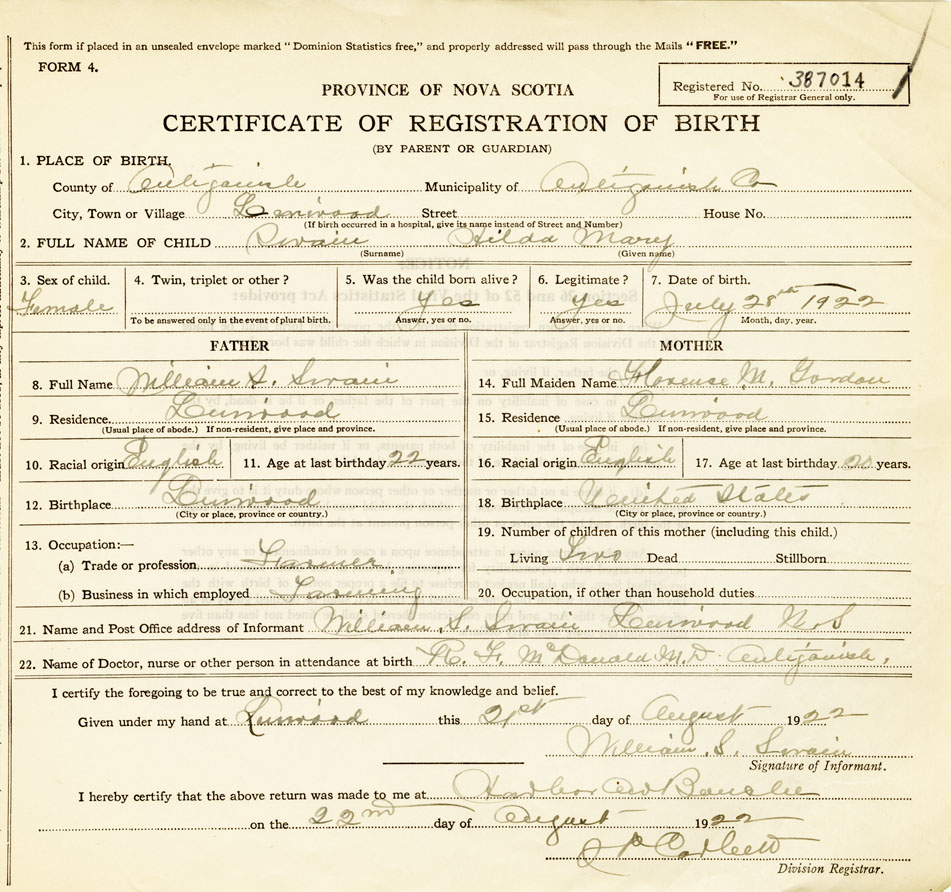 This form if placed in an unsealed envelope marked "Dominion Statistics free," and properly addressed will pass through the Mails "FREE."
FORM 4.
Registered No. 387014
For use of Registrar General only.
PROVINCE OF NOVA SCOTIA
CERTIFICATE OF REGISTRATION OF BIRTH
(BY PARENT OR GUARDIAN)
1. PLACE OF BIRTH.
County of Antigonish Municipality of Antigonish Co
City, Town or Village Linwood Street House No.
(If birth occurred in a hospital, give its name instead of Street and Number)
2. FULL NAME OF CHILD Swain Hilda Mary
(Surname) (Given name)
3. Sex of child. 4. Twin, triplet or other? 5. Was the child born alive? 6. Legitimate? 7. Date of birth.
Female yes yes July 28th 1922
To be answered only in the event of plural birth. Answer, yes or no. Answer, yes or no. Month, day, year.
FATHER MOTHER
8. Full Name William S. Swain 14. Full Maiden Name Florense M. Gordon
9. Residence Linwood 15. Residence Linwood
(Usual place of abode.) If non-resident, give place and province. (Usual place of abode.) If non-resident, give place and province.
10. Racial origin English 11. Age at last birthday 22 years. 16. Racial origin English 17. Age at last birthday 20 years.
12. Birthplace Linwood 18. Birthplace United States
(City or place, province or country.) (City or place, province or country.)
13. Occupation:— 19. Number of children of this mother (including this child.)
(a) Trade or profession Farmer Living Two Dead Stillborn
(b) Business in which employed Farming 20. Occupation, if other than household duties
21. Name and Post Office address of Informant William S. Swain Linwood N.S
22. Name of Doctor, nurse or other person in attendance at birth R. F. McDonald M.D. Antigonish.
I certify the foregoing to be true and correct to the best of my knowledge and belief.
Given under my hand at Linwood this 21st day of August 1922
William S. Swain
Signature of Informant.
I hereby certify that the above return was made to me at Harbor au Bouche
on the 22nd day of August 1922
Corbett
Division Registrar.